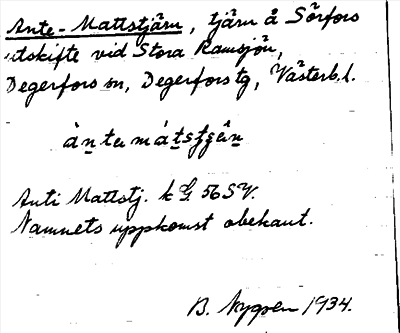 Ante-Mattstjärn, tjärn å Sörfors
utskifte vid Stora Ramsjön,
Degerfors sn, Degerfors tg, Västerb. l.
Anti Mattstj. k G. 56 SV.
Namnets uppkomst obekant.
B. Nygren 1934.